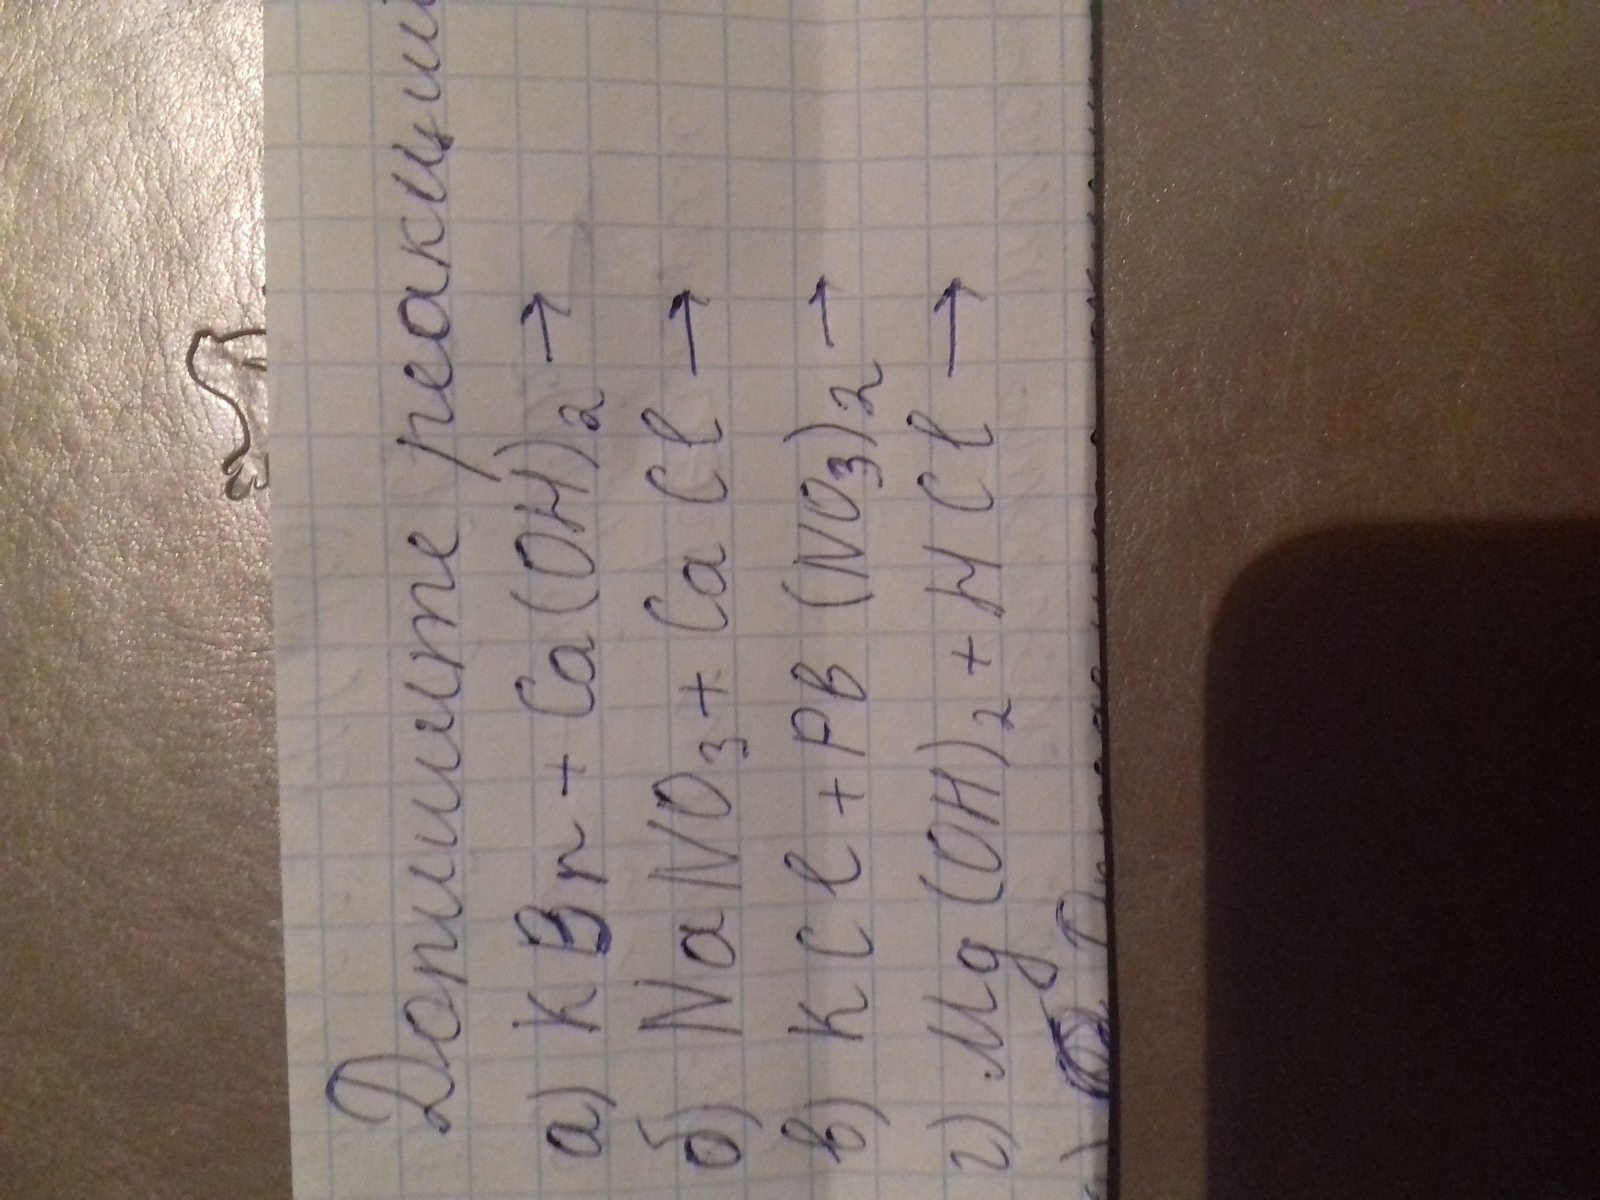 Допишите реакции
а) KBr + Ca(OH)2 →
б) NaNO3 + CaCl →
в) KCl + PB(NO3)2 →
г) Mg(OH)2 + HCl →